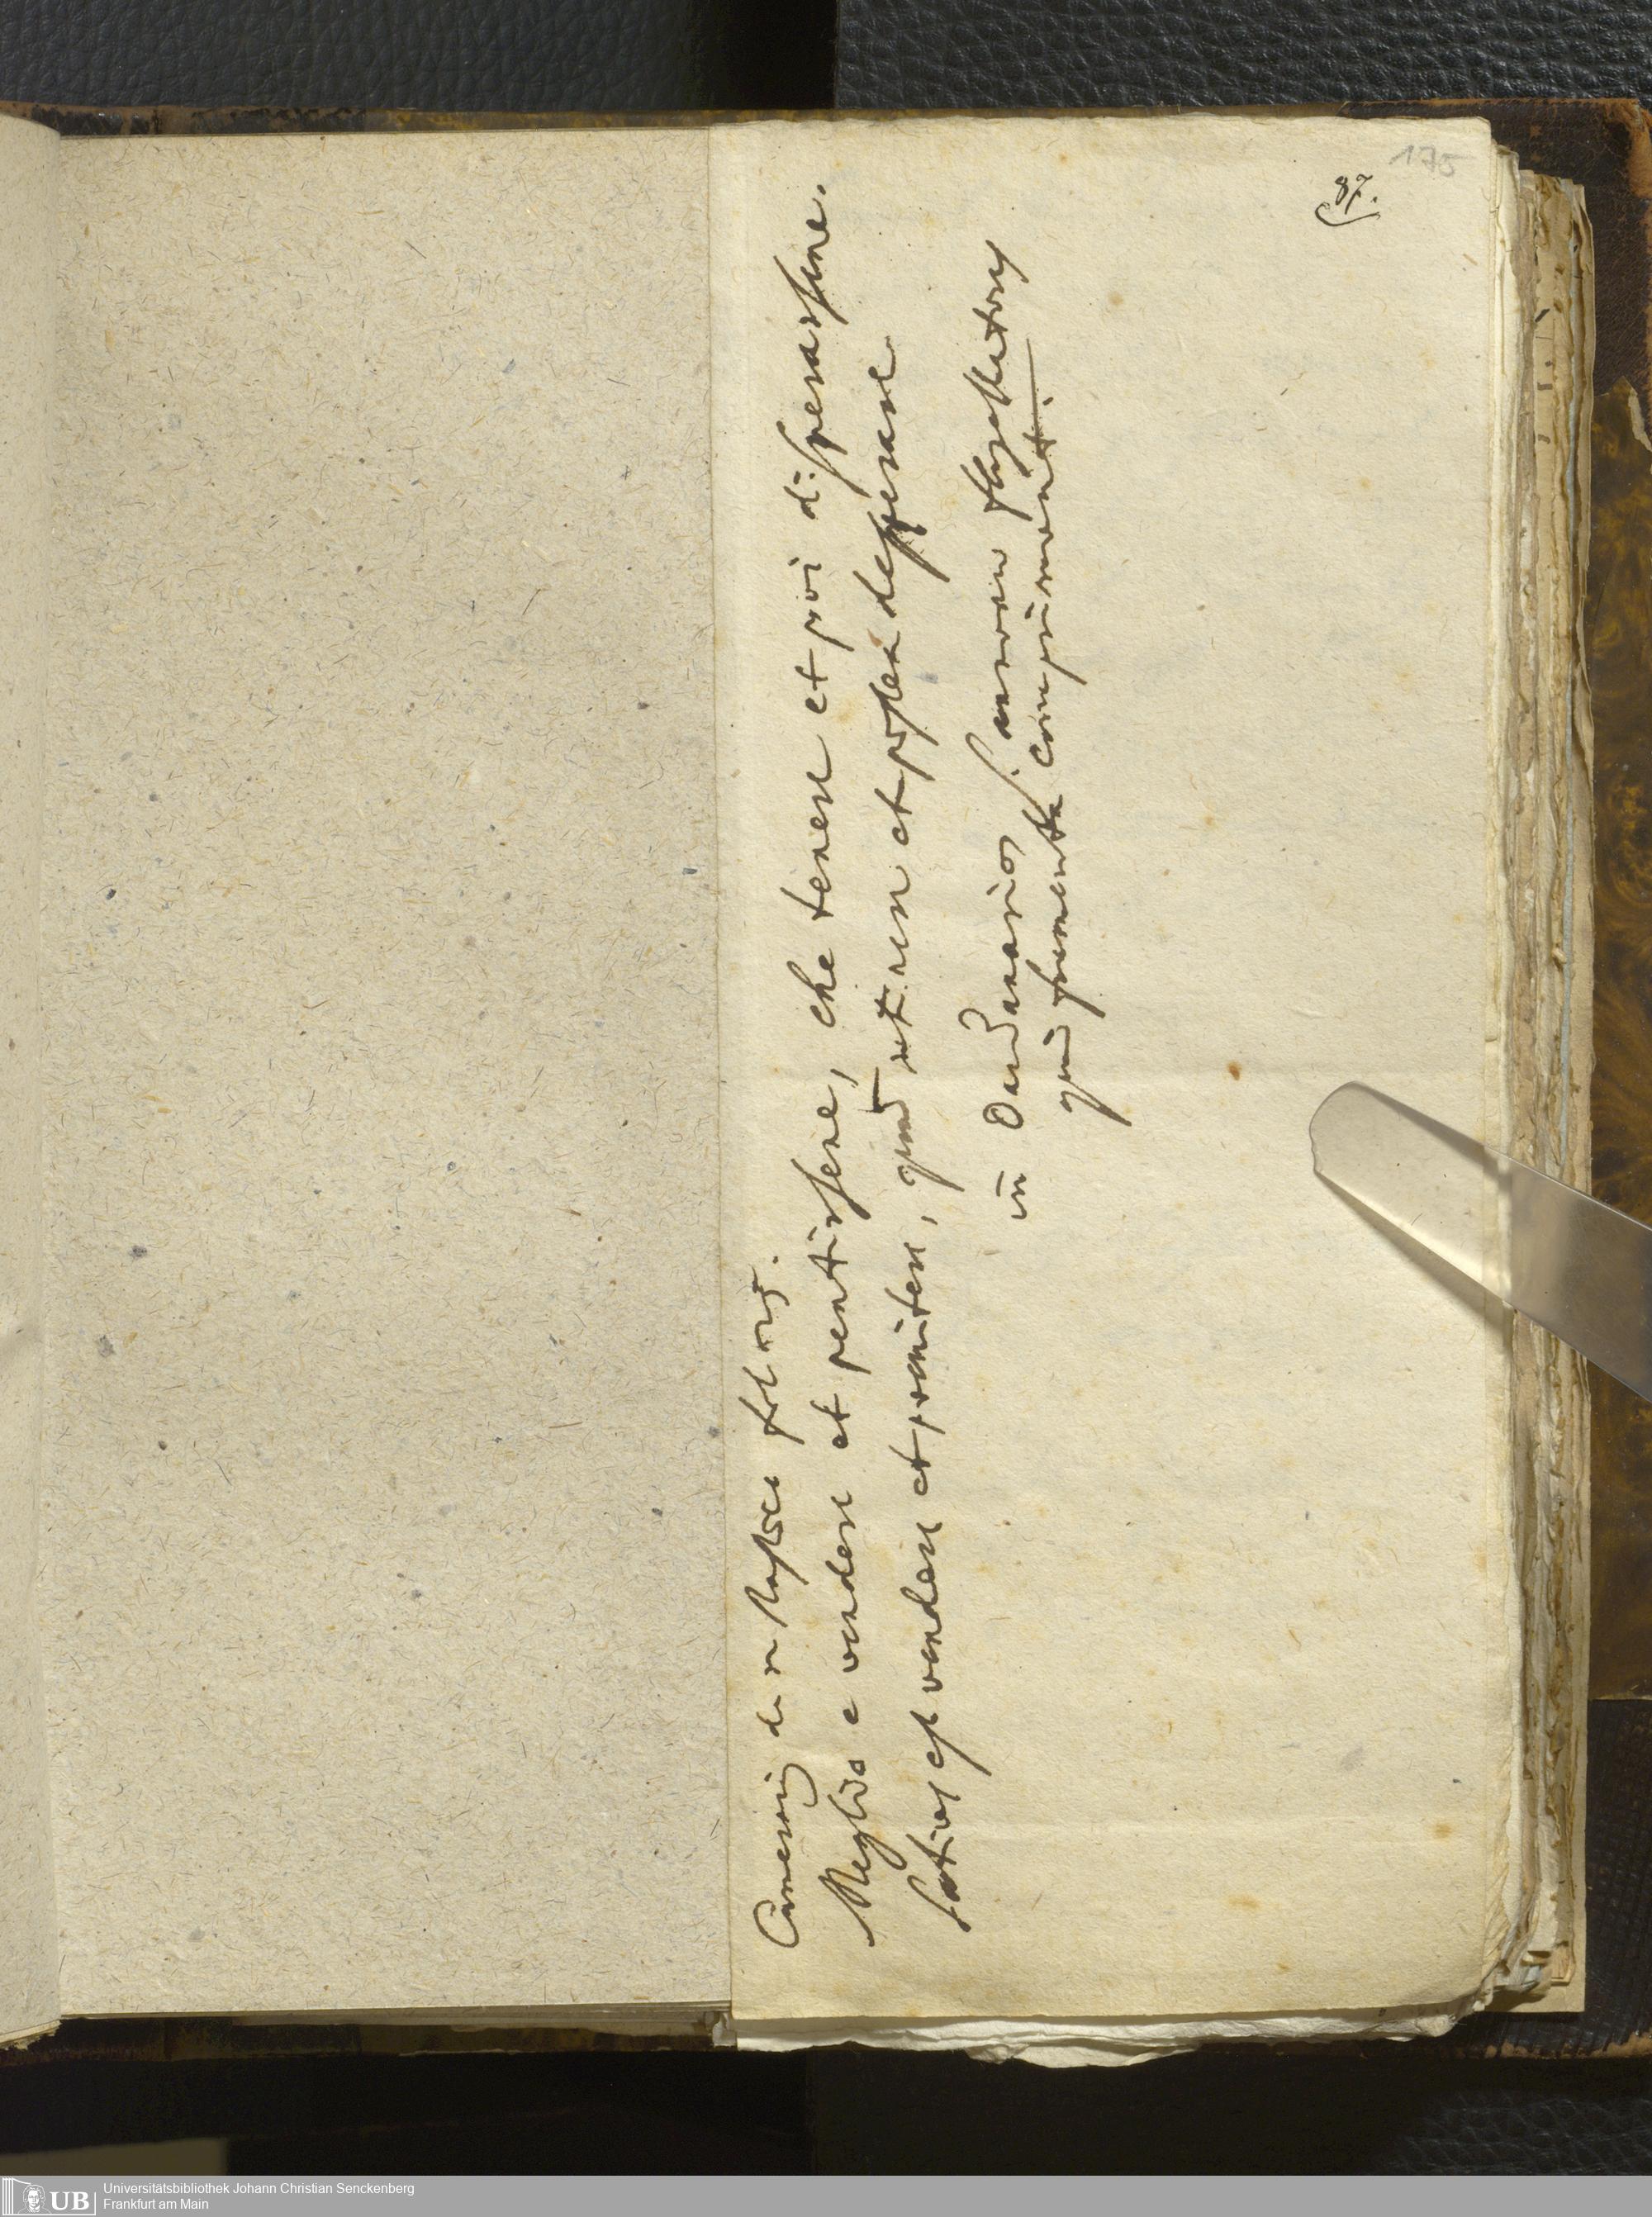 175
87.
Camerarij de re rustica fol.
Meglio e vendere et pentirsene, che tenere et poi disperarsene.
Satius est vendere et poenitere, quam retinere et postea desperare
in Dardanarios s. annonae flagellatores
qui frumenta comprimunt.
UB
Universitätsbibliothek Johann Christian Senckenberg
Frankfurt am Main